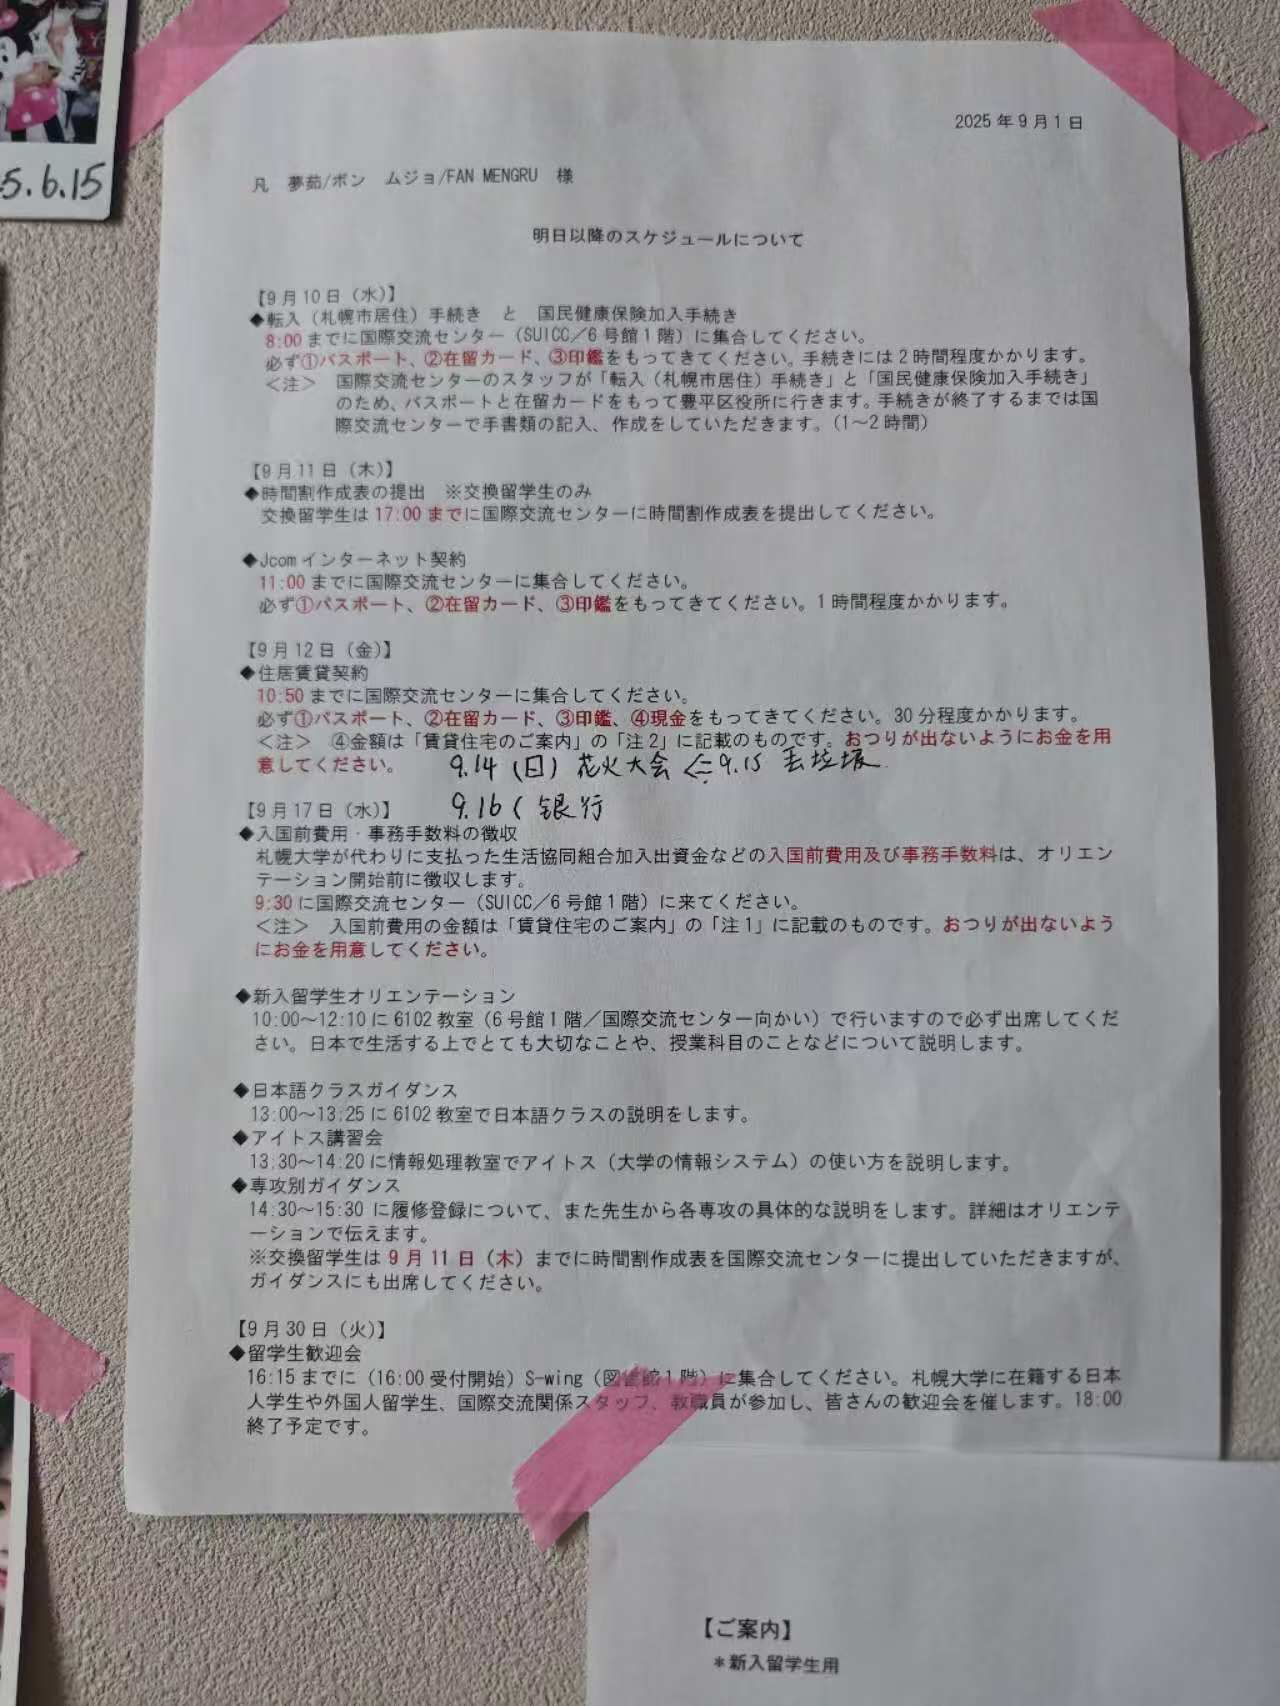 5.6.15
2025年9月1日
凡 夢茹/ボン ムジョ/FAN MENGRU 様
明日以降のスケジュールについて
【9月10日（水）】
◆転入（札幌市居住）手続き と 国民健康保険加入手続き
8:00までに国際交流センター（SUICC／6号館1階）に集合してください。
必ず①パスポート、②在留カード、③印鑑をもってきてください。手続きには2時間程度かかります。
＜注＞ 国際交流センターのスタッフが「転入（札幌市居住）手続き」と「国民健康保険加入手続き」
のため、パスポートと在留カードをもって豊平区役所に行きます。手続きが終了するまでは国
際交流センターで手書類の記入、作成をしていただきます。（1～2時間）
【9月11日（木）】
◆時間割作成表の提出 ※交換留学生のみ
交換留学生は17:00までに国際交流センターに時間割作成表を提出してください。
◆Jcomインターネット契約
11:00までに国際交流センターに集合してください。
必ず①パスポート、②在留カード、③印鑑をもってきてください。1時間程度かかります。
【9月12日（金）】
◆住居賃貸契約
10:50までに国際交流センターに集合してください。
必ず①パスポート、②在留カード、③印鑑、④現金をもってきてください。30分程度かかります。
＜注＞ ④金額は「賃貸住宅のご案内」の「注2」に記載のものです。おつりが出ないようにお金を用
意してください。 9.14（日）花火大会 9.15 丢垃圾
【9月17日（水）】 9.16（ 银行
◆入国前費用・事務手数料の徴収
札幌大学が代わりに支払った生活協同組合加入出資金などの入国前費用及び事務手数料は、オリエン
テーション開始前に徴収します。
9:30に国際交流センター（SUICC／6号館1階）に来てください。
＜注＞ 入国前費用の金額は「賃貸住宅のご案内」の「注1」に記載のものです。おつりが出ないよう
にお金を用意してください。
◆新入留学生オリエンテーション
10:00～12:10に6102教室（6号館1階／国際交流センター向かい）で行いますので必ず出席してくだ
さい。日本で生活する上でとても大切なことや、授業科目のことなどについて説明します。
◆日本語クラスガイダンス
13:00～13:25に6102教室で日本語クラスの説明をします。
◆アイトス講習会
13:30～14:20に情報処理教室でアイトス（大学の情報システム）の使い方を説明します。
◆専攻別ガイダンス
14:30～15:30に履修登録について、また先生から各専攻の具体的な説明をします。詳細はオリエンテ
ーションで伝えます。
※交換留学生は9月11日（木）までに時間割作成表を国際交流センターに提出していただきますが、
ガイダンスにも出席してください。
【9月30日（火）】
◆留学生歓迎会
16:15までに（16:00受付開始）S-wing（図書館1階）に集合してください。札幌大学に在籍する日本
人学生や外国人留学生、国際交流関係スタッフ、教職員が参加し、皆さんの歓迎会を催します。18:00
終了予定です。
【ご案内】
＊新入留学生用